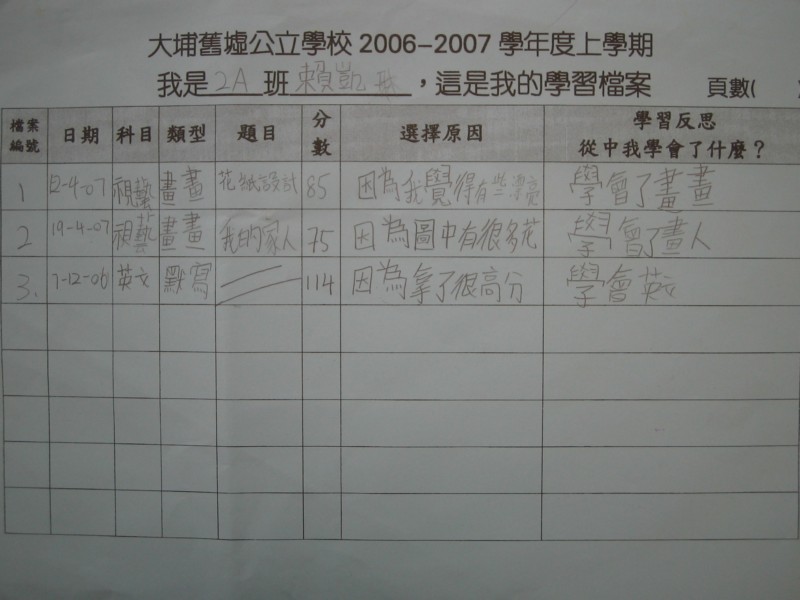 大埔舊墟公立學校 2006-2007 學年度上學期
我是 2A 班 賴凱 ，這是我的學習檔案 頁數(
檔案編號 日期 科目 類型 題目 分數 選擇原因 學習反思 從中我學會了什麼？
1 12-4-07 視藝 畫畫 花紙設計 85 因為我覺得有些漂亮 學會了畫畫
2 19-4-07 視藝 畫畫 我的家人 75 因為圖中有很多花 學會了畫人
3. 7-12-06 英文 默寫 114 因為拿了很高分 學會英文